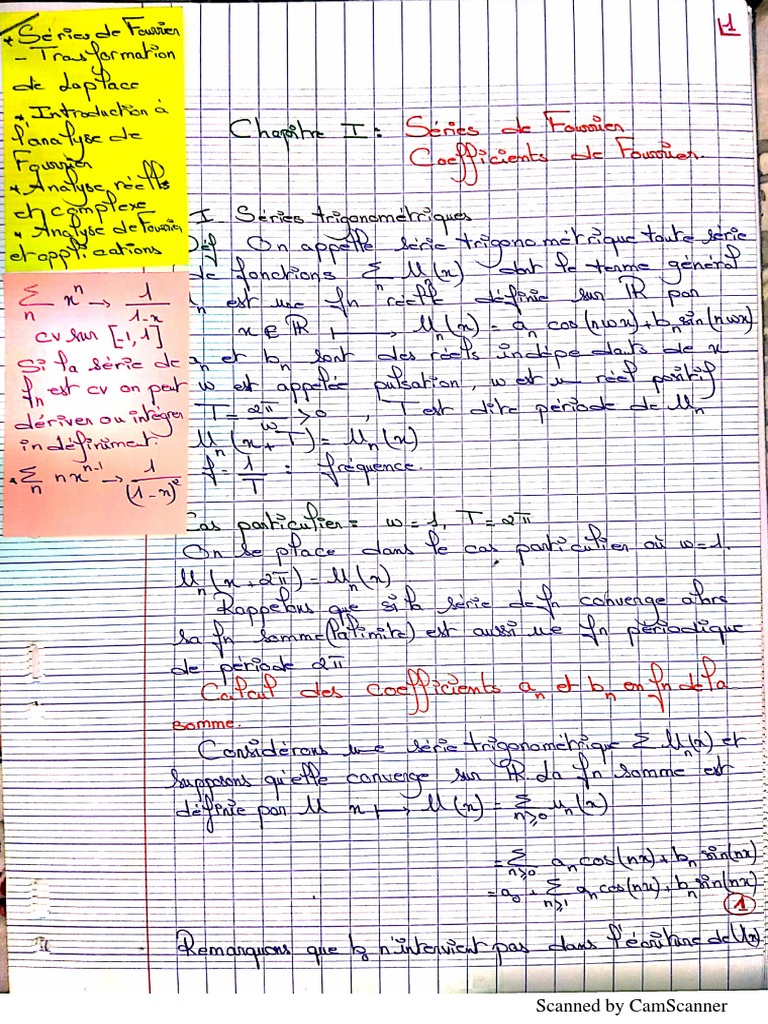 1
* Séries de Fourier
- Trasformation
de Laplace
* Introduction à
l'analyse de
Fourier
* Analyse réells
et complexe
* Analyse de Fourier
et applications
Σ_n x^n → 1/(1-x)
cv sur [-1,1]
Si la série de
fn est cv on peut
dériver ou intégrer
indéfiniment.
Σ_n n x^(n-1) → 1/(1-x)^2
Chapitre I : Séries de Fourier
Coefficients de Fourier.
I Séries trigonométriques
Déf On appelle série trigonométrique toute série
de fonctions Σ_n U_n(x) dont le terme général
est une fn réelle définie sur ℝ par
x ∈ ℝ ⟼ U_n(x) = a_n cos(nωx) + b_n sin(nωx)
a_n et b_n sont des réels indépe dants de x
ω est appelée pulsation, ω est u réel positif
T = 2π/ω > 0 , T est dite période de U_n
U_n(x+T) = U_n(x)
f = 1/T : fréquence.
Cas particulier : ω = 1, T = 2π
On se place dans le cas particulier où ω = 1.
U_n(x+2π) = U_n(x)
Rappelons que si la série de fn converge alors
sa fn somme (la limite) est aussi ue fn périodique
de période 2π
Calcul des coefficients a_n et b_n en fn de la
somme.
Considérons une série trigonométrique Σ U_n(x) et
supposons qu'elle converge sur ℝ da fn somme est
définie par U x ⟼ U(x) = Σ_{n≥0} u_n(x)
= Σ_{n≥0} a_n cos(nx) + b_n sin(nx)
= a_0 + Σ_{n≥1} a_n cos(nx) + b_n sin(nx)
1
Remarquons que b_0 n'intervient pas dans l'écriture de U(x)
Scanned by CamScanner